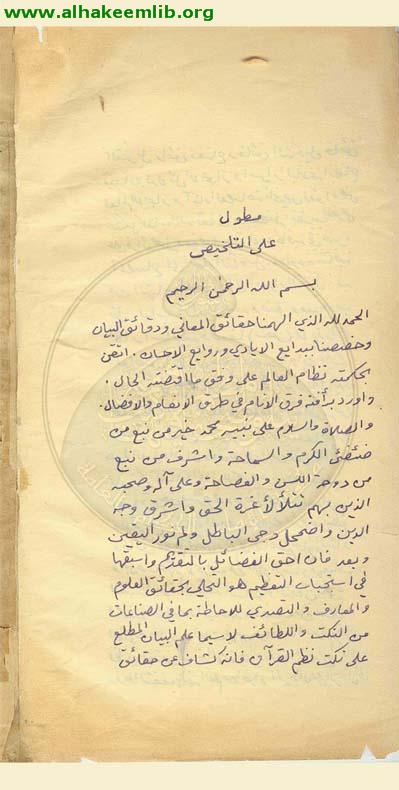 www.alhakeemlib.org
مطول
على التلخيص
بسم الله الرحمن الرحيم
الحمد لله الذي الهمنا حقائق المعاني ودقائق البيان
وخصصنا ببدايع الايادي وروايع الاحسان . اتقن
بحكمته نظام العالم على وفق ما اقتضته الحال .
واورد برأفته فرق الانام في طرق الانعام والافضال .
والصلاة والسلام على نبيه محمد خير من نبع من
ضئضئ الكرم والسماحة واشرف من نبع
من دوحة اللسن والفصاحة وعلى آله وصحبه
الذين بهم تلألأ غرة الحق واشرق وجه
الدين واضمحل دجى الباطل ولم نور اليقين
وبعد فان احق الفضائل بالتقديم واسبقها
في استجباب التعظيم هو التحلي بحقائق العلوم
والمعارف والتصدي للاحاطة بما في الصناعات
من النكت واللطائف لا سيما علم البيان المطلع
على نكت نظم القرآن فانه كشاف عن حقائق